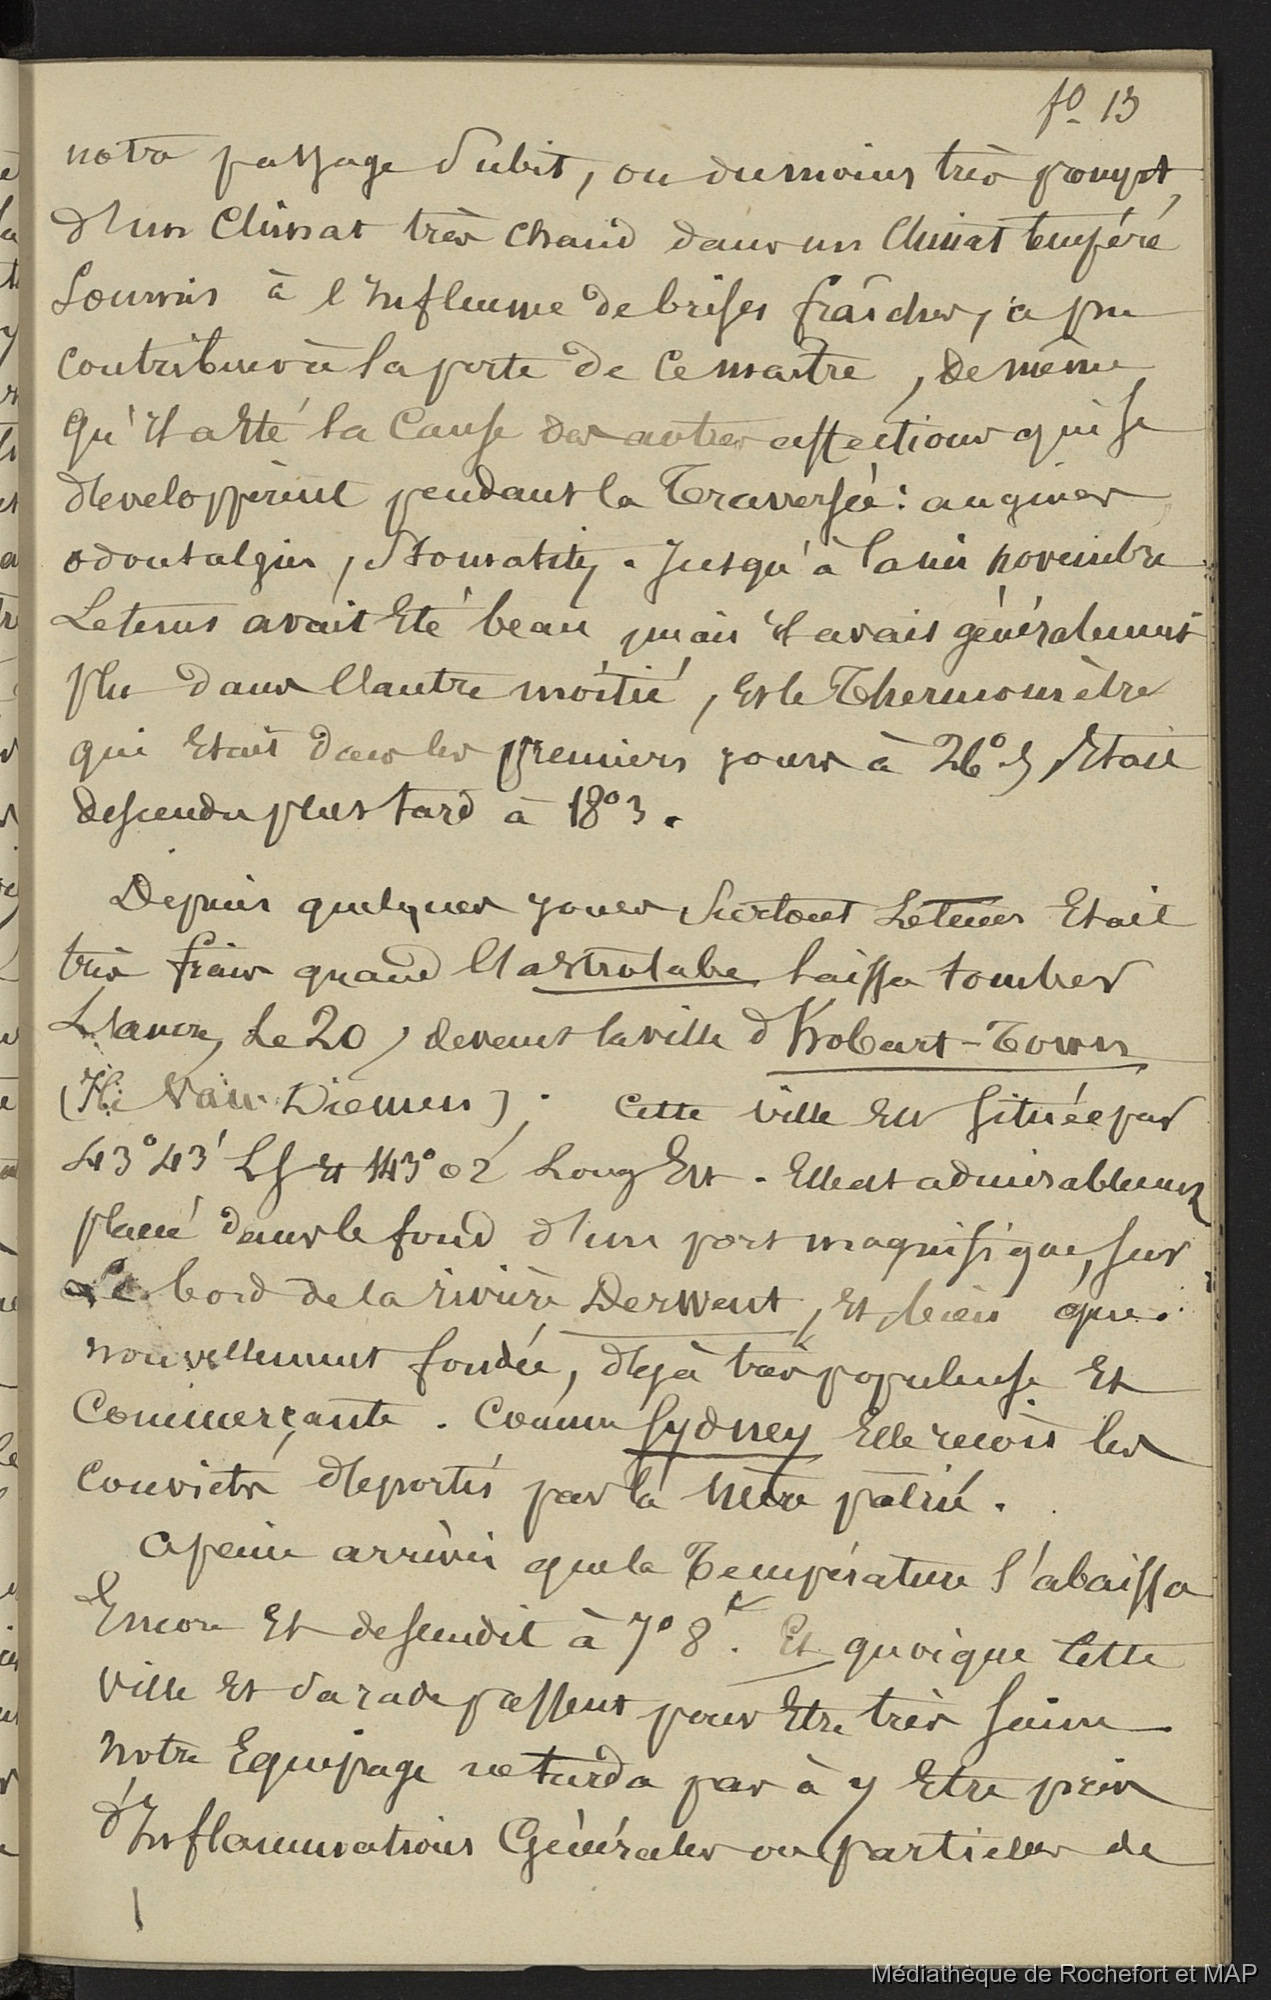 fo 13
notre passage subit, ou du moins très prompt,
d'un Climat très chaud dans un Climat tempéré
soumis à l'Influence de brises fraîches, a pu
contribuer à la perte de ce maître, de même
qu'il a Eté la Cause des autres affections qui se
développèrent pendant la Traversée : angines
odontalgies, stomatites. Jusqu'à la mi novembre
Le tems avait Eté beau, mais il avait généralement
plu dans l'autre moitié, Et le Thermomètre
qui Etait dans les premiers jours à 26° 5, Etait
descendu plus tard à 18° 3.
Depuis quelques jours surtout Le tems Etait
très frais quand l'astrolabe laissa tomber
L'ancre, Le 20, devant la ville d'hobart-Town
(Ile Van Diemen). Cette ville Est située par
43° 43' LS Et 143° 02' Long Est. Elle est admirablement
placé dans le fond d'un port magnifique, sur
Le bord de la rivière Derwent, Et bien que
nouvellement fondée, déjà très populeuse Et
Commerçante. Comme Sydney Elle reçoit les
Convicts déportés par la Mère patrie.
A peine arrivés que la Température s'abaissa
Encore Et descendit à 7° 8. Et quoique Cette
ville Et sa rade passent pour Etre très saine
Notre Equipage ne tarda pas à y Etre pris
d'Inflammations Générales ou partielles de
Médiathèque de Rochefort et MAP